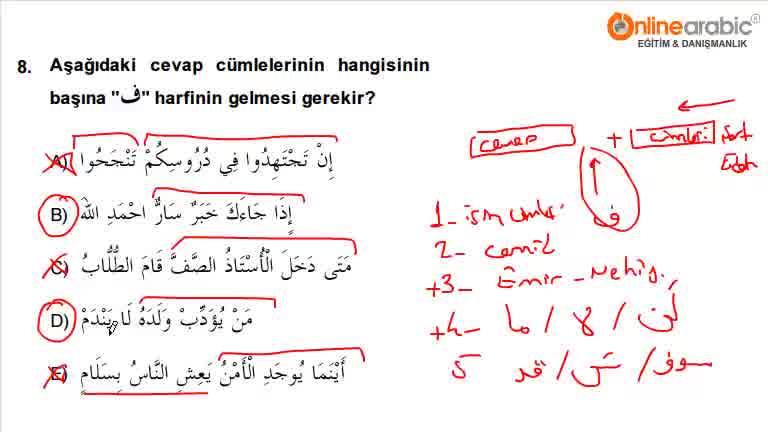 Onlinearabic®
EĞİTİM & DANIŞMANLIK
8. Aşağıdaki cevap cümlelerinin hangisinin
başına "ف" harfinin gelmesi gerekir?
A) إِنْ تَجْتَهِدُوا فِي دُرُوسِكُمْ تَنْجَحُوا
B) إِذَا جَاءَكَ خَبَرٌ سَارٌّ احْمَدِ اللهَ
C) مَتَى دَخَلَ الْأُسْتَاذُ الصَّفَّ قَامَ الطُّلَّابُ
D) مَنْ يُؤَدِّبْ وَلَدَهُ لَا يَنْدَمْ
E) أَيْنَمَا يُوجَدِ الْأَمْنُ يَعِشِ النَّاسُ بِسَلَامٍ
cevap + cümlesi Şart
Edatı
1- isim cümlesi ف
2- camid
+3- Emir - Nehiy
+4- ما / لا / لن
5 قد / س / سوف